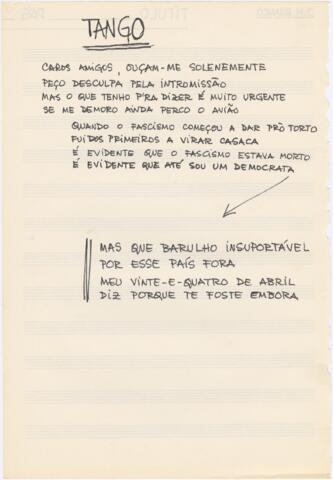 TANGO
CAROS AMIGOS, OUÇAM-ME SOLENEMENTE
PEÇO DESCULPA PELA INTROMISSÃO
MAS O QUE TENHO P'RA DIZER É MUITO URGENTE
SE ME DEMORO AINDA PERCO O AVIÃO
QUANDO O FASCISMO COMEÇOU A DAR PRÓ TORTO
FUI DOS PRIMEIROS A VIRAR CASACA
É EVIDENTE QUE O FASCISMO ESTAVA MORTO
É EVIDENTE QUE ATÉ SOU UM DEMOCRATA
MAS QUE BARULHO INSUPORTÁVEL
POR ESSE PAÍS FORA
MEU VINTE-E-QUATRO DE ABRIL
DIZ PORQUE TE FOSTE EMBORA